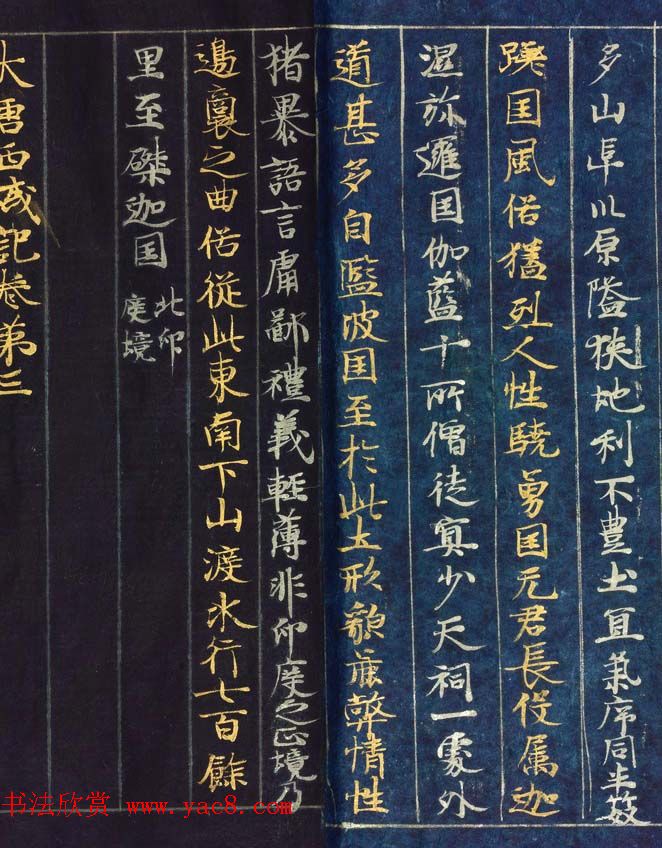 多山阜川原隘狭地利不豊土宜氣序同半笯
蹉国風俗猛烈人性驍勇国无君長役属迦
濕弥邏国伽藍十所僧徒寡少天祠一處外
道甚多自監波国至於此土形貌麁弊情性
猪暴語言庸鄙禮義輕薄非印度之正境乃
邊裔之曲俗從此東南下山渡水行七百餘
里至磔迦国北印度境
大唐西域記卷第三
书法欣赏 www.yac8.com